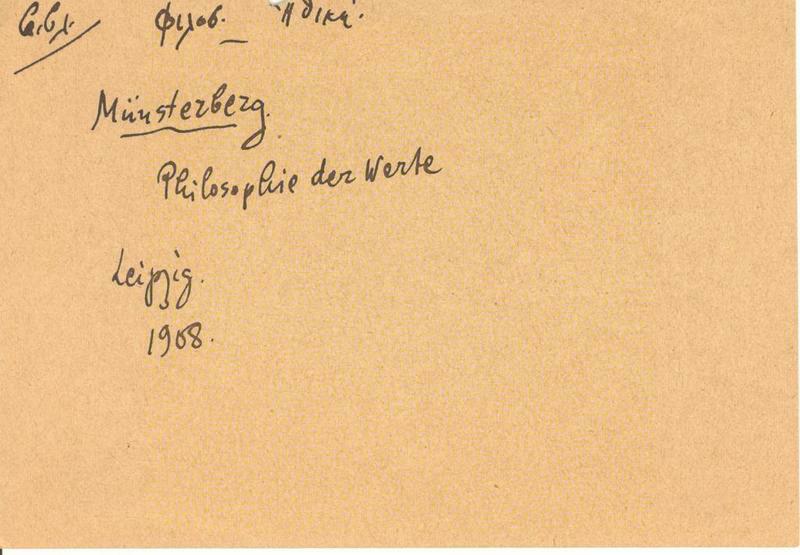 Φιλοσ. Ἠθική.
Münsterberg.
Philosophie der Werte
Leipzig.
1908.